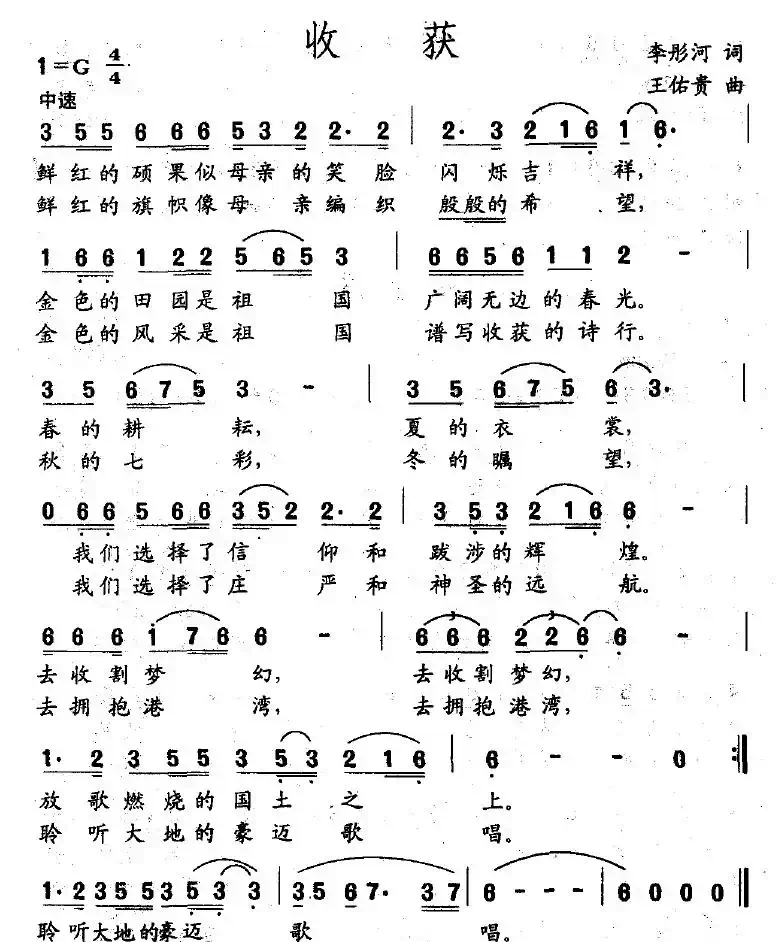 收 获
1=G 4/4
李彤河 词
中速
王佑贵 曲
3 5 5 6 6 6 6 5 3 2 2· 2 | 2· 3 2 1 6 1 6· |
鲜红的硕果似母亲的笑脸 闪烁吉祥,
鲜红的旗帜像母亲编织 殷殷的希望,
1 6 6 1 2 2 5 6 5 3 | 6 6 5 6 1 1 2 - |
金色的田园是祖国 广阔无边的春光。
金色的风采是祖国 谱写收获的诗行。
3 5 6 7 5 3 - | 3 5 6 7 5 6 3· |
春的耕耘, 夏的衣裳,
秋的七彩, 冬的瞩望,
0 6 6 5 6 6 3 5 2 2· 2 | 3 5 3 2 1 6 6 - |
我们选择了信仰和 跋涉的辉煌。
我们选择了庄严和 神圣的远航。
6 6 6 1 7 6 6 - | 6 6 6 2 2 6 6 - |
去收割梦幻, 去收割梦幻,
去拥抱港湾, 去拥抱港湾,
1· 2 3 5 5 3 5 3 2 1 6 | 6 - - 0 :|
放歌燃烧的国土之上。
聆听大地的豪迈歌唱。
1· 2 3 5 5 3 5 3 3 | 3 5 6 7· 3 7 | 6 - - - | 6 0 0 0 |
聆听大地的豪迈歌唱。